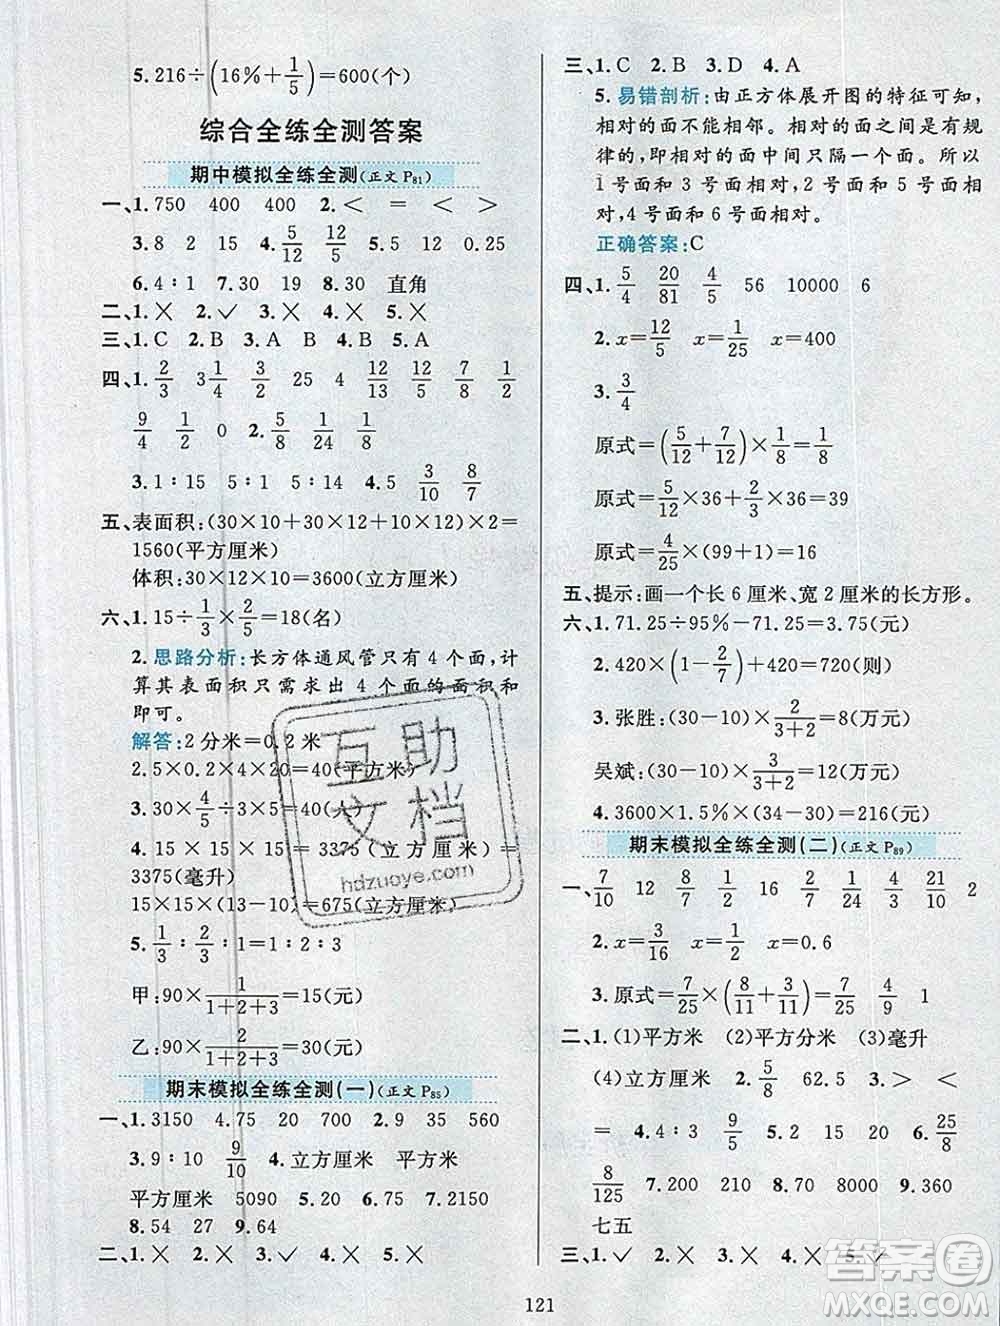 5.216÷(16%+1/5)=600(个)
综合全练全测答案
期中模拟全练全测(正文 P81)
一、1.750 400 400 2.< = < >
3.8 2 15 4.5/12 12/5 5.5 12 0.25
6.4∶1 7.30 19 8.30 直角
二、1.✕ 2.✓ 3.✕ 4.✕ 5.✕
三、1.C 2.B 3.A B 4.B 5.A
四、1.2/3 3 1/4 3/2 25 4 12/13 12/5 7/8
9/4 1/2 0 2.5/8 1/24 1/8
3.1∶15 5∶1 5∶14 4.5 3/10 8/7
五、表面积:(30×10+30×12+10×12)×2=
1560(平方厘米)
体积:30×12×10=3600(立方厘米)
六、1.15÷1/3×2/5=18(名)
2.思路分析:长方体通风管只有 4 个面,计
算其表面积只需求出 4 个面的面积和
即可。
解答:2 分米=0.2 米
2.5×0.2×4×20=40(平方米)
3.30×4/5÷3×5=40(人)
4.15×15×15=3375(立方厘米)=
3375(毫升)
15×15×(15÷5)=675(立方厘米)
5.1/3∶2/3∶1=1∶2∶3
甲:90×1/(1+2+3)=15(元)
乙:90×2/(1+2+3)=30(元)
期末模拟全练全测(一)(正文 P85)
一、1.3150 4.75 20 700 2.9 35 560
3.9∶10 9/10 4.立方厘米 平方米
平方厘米 5090 5.20 6.75 7.2150
8.54 27 9.64
二、1.✕ 2.✕ 3.✓ 4.✕ 5.✕
三、1.C 2.B 3.D 4.A
5.易错剖析:由正方体展开图的特征可知,
相对的面不能相邻。相对的面之间是有规
律的,即相对的面中间只隔一个面。所以
1 号面和 3 号面相对,2 号面和 5 号面相
对,4 号面和 6 号面相对。
正确答案:C
四、1.5/4 20/81 4/5 56 10000 6
2.x=12/5 x=1/25 x=400
3.3/4
原式=(5/12+7/12)×1/8=1/8
原式=5/12×36+2/3×36=39
原式=4/25×(99+1)=16
五、提示:画一个长 6 厘米、宽 2 厘米的长方形。
六、1.71.25÷95%-71.25=3.75(元)
2.420×(1-2/7)+420=720(则)
3.张胜:(30-10)×2/(3+2)=8(万元)
吴斌:(30-10)×3/(3+2)=12(万元)
4.3600×1.5%×(34-30)=216(元)
期末模拟全练全测(二)(正文 P89)
一、7/10 12 8/7 1/2 16 2/7 1/2 4/9 21/10 2
2.x=3/16 x=1/2 x=0.6
3.原式=7/25×(8/11+3/11)=7/25 4/9 1
二、1.(1)平方米 (2)平方分米 (3)毫升
(4)立方厘米 2.5/8 62.5 3.> <
= 4.4∶3 9/5 5.12 15 20 6.8/9
8/125 7.200 250 8.20 8000 9.360
七五
三、1.✓ 2.✕ 3.✕ 4.✕ 5.✓
互助
文档
hdzuoye.com
答案圈
MXQE.COM
121